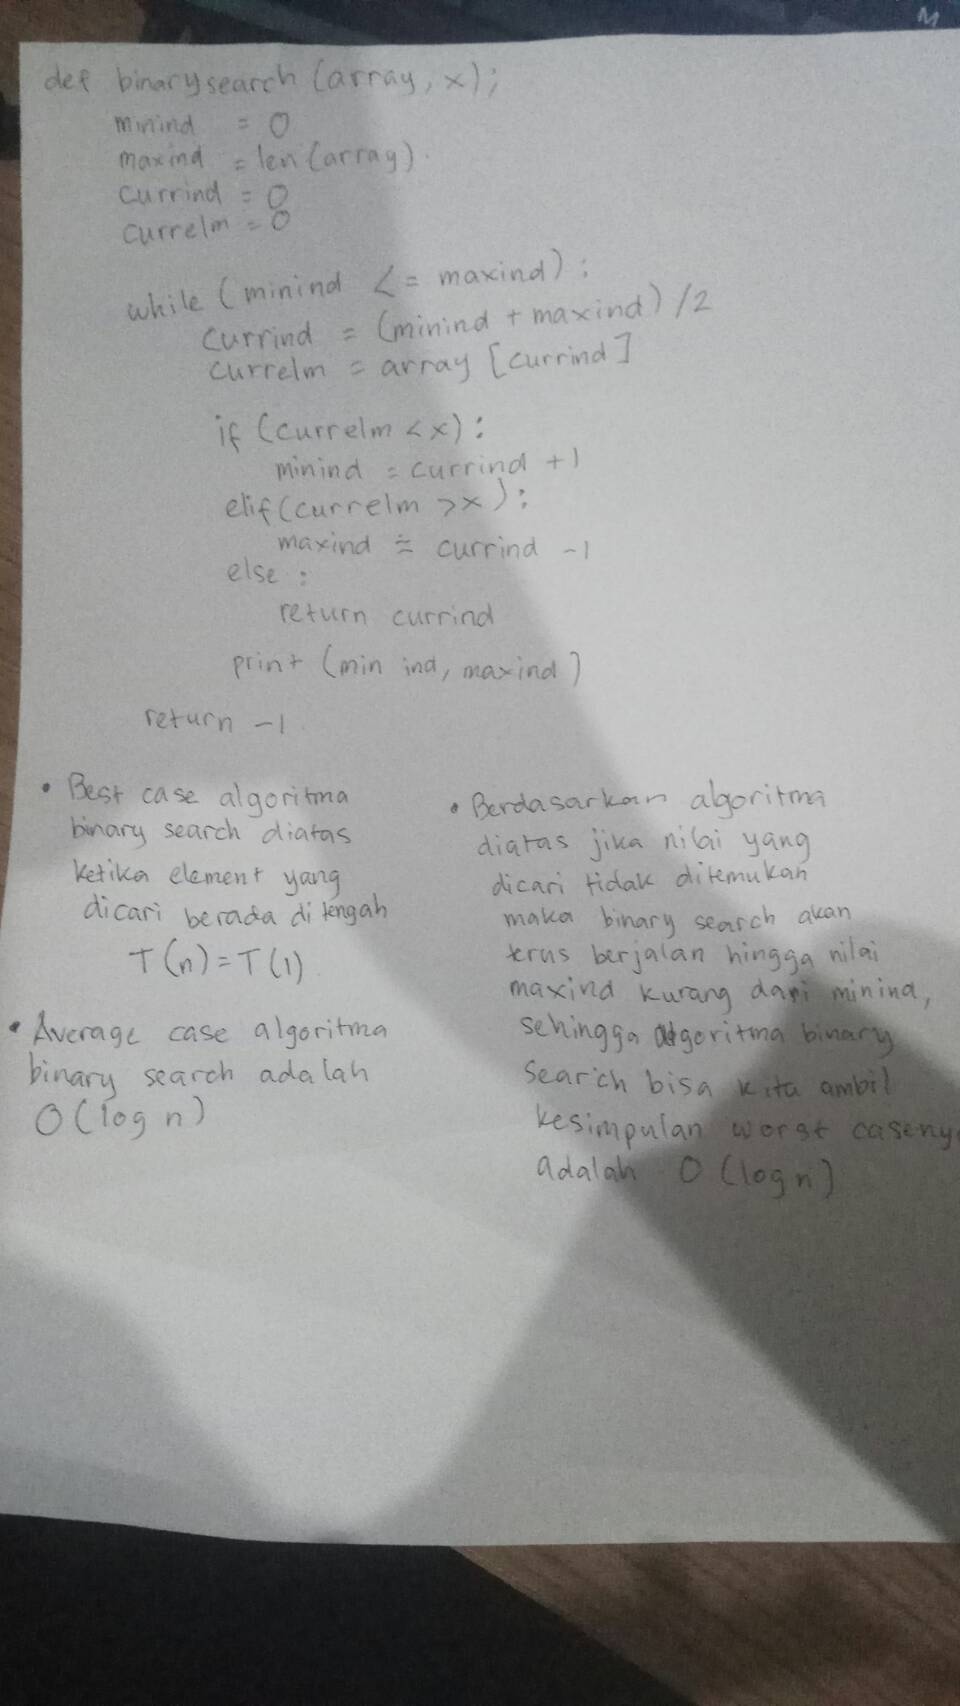 M
def binarysearch (array, x);
minind = 0
maxind = len(array).
currind = 0
currelm = 0
while (minind <= maxind):
currind = (minind + maxind) /2
currelm = array [currind]
if (currelm < x):
minind = currind +1
elif (currelm > x):
maxind = currind -1
else :
return currind
print (min ind, maxind)
return -1.
• Best case algoritma
binary search diatas
ketika element yang
dicari berada di tengah
T(n) = T(1)
• Average case algoritma
binary search adalah
O(log n)
• Berdasarkan algoritma
diatas jika nilai yang
dicari tidak ditemukan
maka binary search akan
terus berjalan hingga nilai
maxind kurang dari minind,
sehingga algoritma binary
search bisa kita ambil
kesimpulan worst caseny
adalah O(log n)